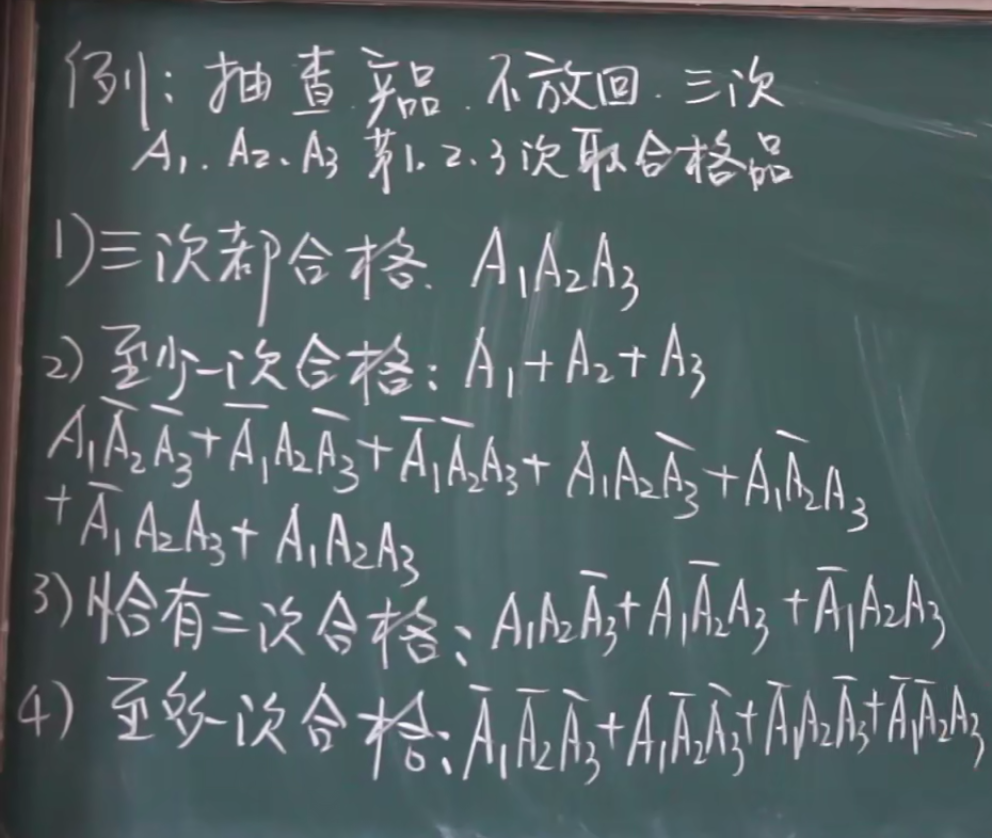 例: 抽查产品. 不放回. 三次
A₁. A₂、A₃ 第1. 2. 3次取合格品
1) 三次都合格. A₁A₂A₃
2) 至少一次合格: A₁+A₂+A₃
A₁A̅₂A̅₃+A̅₁A₂A̅₃+A̅₁A̅₂A₃+A₁A₂A̅₃+A₁A̅₂A₃
+A̅₁A₂A₃+A₁A₂A₃
3) 恰有二次合格: A₁A₂A̅₃+A₁A̅₂A₃+A̅₁A₂A₃
4) 至多一次合格: A̅₁A̅₂A̅₃+A₁A̅₂A̅₃+A̅₁A₂A̅₃+A̅₁A̅₂A₃